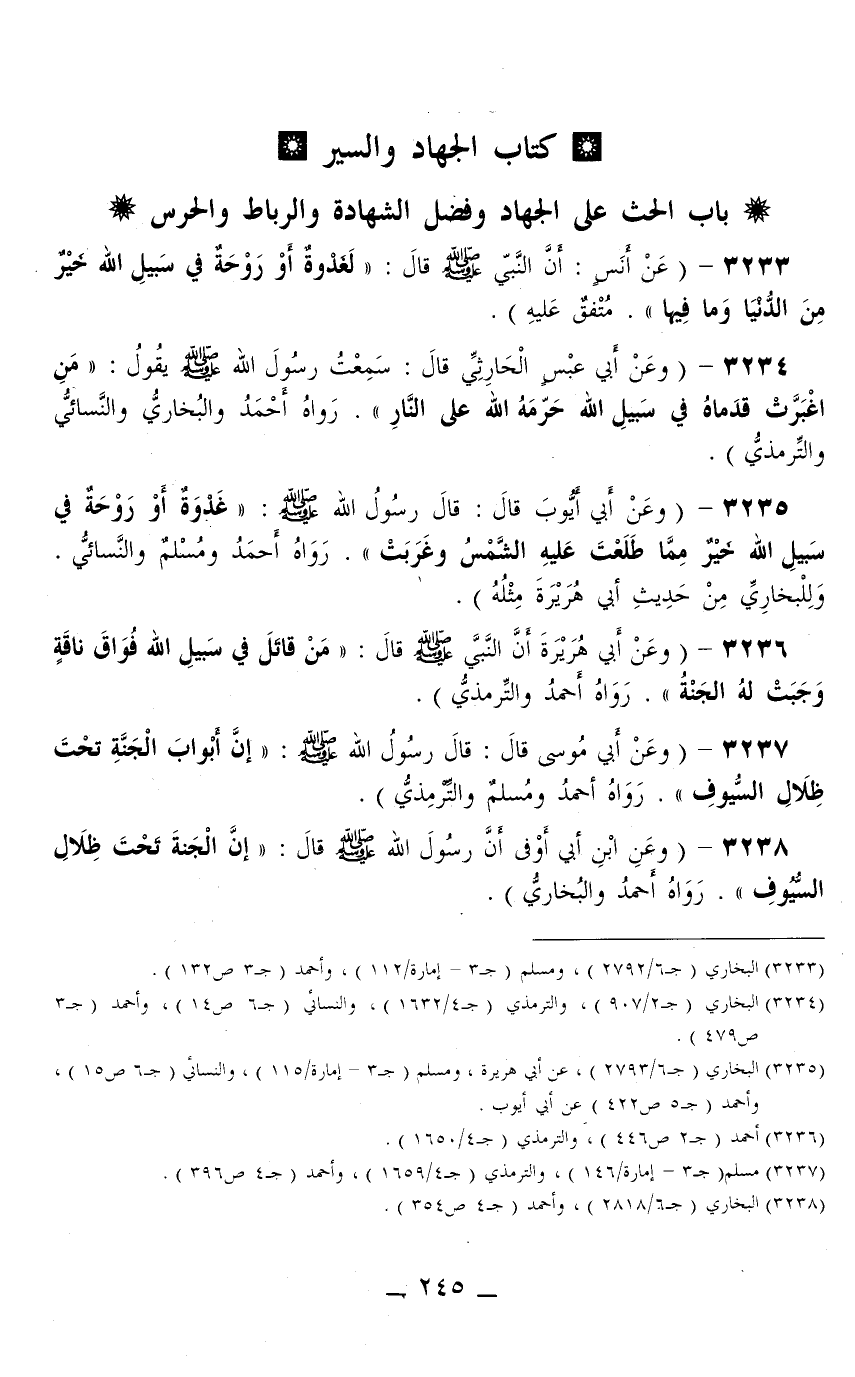 كتاب الجهاد والسير
باب الحث على الجهاد وفضل الشهادة والرباط والحرس
٣٢٣٣ – ( عَنْ أَنَسٍ : أَنَّ النَّبيّ ﷺ قالَ : « لَغَدْوةٌ أَوْ رَوْحَةٌ في سَبيلِ الله خَيْرٌ
مِنَ الدُّنْيَا وَما فِيها » . مُتْفقٌ عَليهِ ) .
٣٢٣٤ – ( وعَنْ أبي عبْسٍ الْحَارثِيِّ قالَ : سَمِعْتُ رسُولَ الله ﷺ يقُولُ : « مَنِ
اغْبَرَّتْ قدَماهُ في سَبيلِ الله حَرّمَهُ الله على النَّارِ » . رَواهُ أَحْمَدُ والبُخاريُّ والنَّسائيُّ
والتِّرمذيُّ ) .
٣٢٣٥ – ( وعَنْ أَبي أَيُّوبَ قالَ : قالَ رسُولُ الله ﷺ : « غَدْوَةٌ أَوْ رَوْحَةٌ في
سَبيلِ الله خَيْرٌ مِمَّا طَلَعْتَ عَليهِ الشَّمْسُ وغَرَبَتْ » . رَوَاهُ أَحمَدُ ومُسْلمٌ والنَّسائيُّ .
وَلِلْبخاريِّ مِنْ حَديثِ أبي هُرَيْرَةَ مِثْلُهُ ) .
٣٢٣٦ – ( وعَنْ أَبي هُرَيْرَةَ أَنَّ النَّبيَّ ﷺ قالَ : « مَنْ قاتَلَ في سَبيلِ الله فُوَاقَ ناقَةٍ
وَجَبَتْ لهُ الجَنْةُ » . رَوَاهُ أَحمدُ والتّرمذيُّ ) .
٣٢٣٧ – ( وعَنْ أَبي مُوسى قالَ : قالَ رسُولُ الله ﷺ : « إنَّ أَبْوابَ الْجَنَّةِ تحْتَ
ظِلَالِ السُّيوفِ » . رَوَاهُ أحمدُ ومُسلمٌ والتِّرْمِذيُّ ) .
٣٢٣٨ – ( وعَنِ ابْنِ أبي أَوْفى أَنَّ رسُولَ الله ﷺ قالَ : « إنَّ الْجَنةَ تَحْتَ ظِلَالِ
السُّيُوفِ » . رَوَاهُ أَحمدُ والبُخاريُّ ) .
(٣٢٣٣) البخاري ( جـ٢٧٩٢/٦ ) ، ومسلم ( جـ٣ – إمارة/١١٢ ) ، وأحمد ( جـ٣ ص١٣٢ ) .
(٣٢٣٤) البخاري ( جـ٩٠٧/٢ ) ، والترمذي ( جـ١٦٣٢/٤ ) ، والنسائي ( جـ٦ ص١٤ ) ، وأحمد ( جـ٣
ص٤٧٩ ) .
(٣٢٣٥) البخاري ( جـ٢٧٩٣/٦ ) ، عن أبي هريرة ، ومسلم ( جـ٣ – إمارة/١١٥ ) ، والنسائي ( جـ٦ ص١٥ ) ،
وأحمد ( جـ٥ ص٤٢٢ ) عن أبي أيوب .
(٣٢٣٦) أحمد ( جـ٢ ص٤٤٦ ) ، والترمذي ( جـ١٦٥٠/٤ ) .
(٣٢٣٧) مسلم( جـ٣ – إمارة/١٤٦ ) ، والترمذي ( جـ١٦٥٩/٤ ) ، وأحمد ( جـ٤ ص٣٩٦ ) .
(٣٢٣٨) البخاري ( جـ٢٨١٨/٦ ) ، وأحمد ( جـ٤ ص٣٥٤ ) .
– ٢٤٥ –